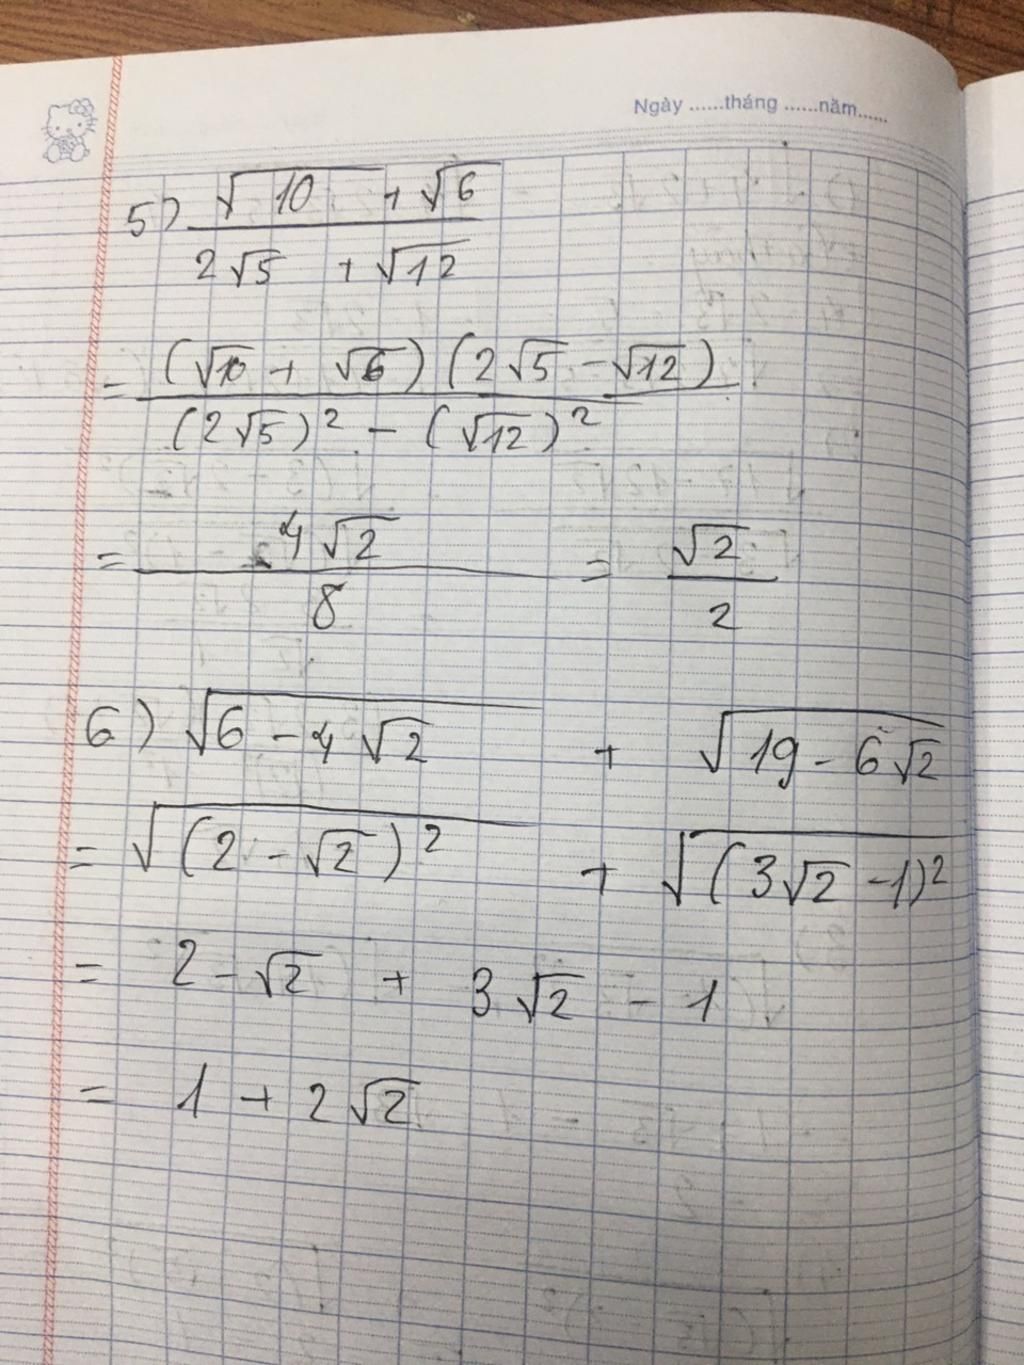 Ngày ......tháng ......năm......
5) (√10 + √6) / (2√5 + √12)
= (√10 + √6)(2√5 - √12) / ((2√5)² - (√12)²)
= 4√2 / 8 = √2 / 2
6) √(6 - 4√2) + √(19 - 6√2)
= √((2 - √2)²) + √((3√2 - 1)²)
= 2 - √2 + 3√2 - 1
= 1 + 2√2